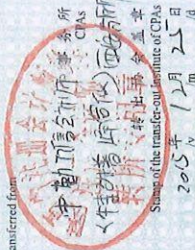 ansferred from
中勤万信会计师事务所
CPAs
(特殊普通合伙)
转出协会盖章
Stamp of the transfer-out Institute of CPAs
2015年12月25日
/y /m /d